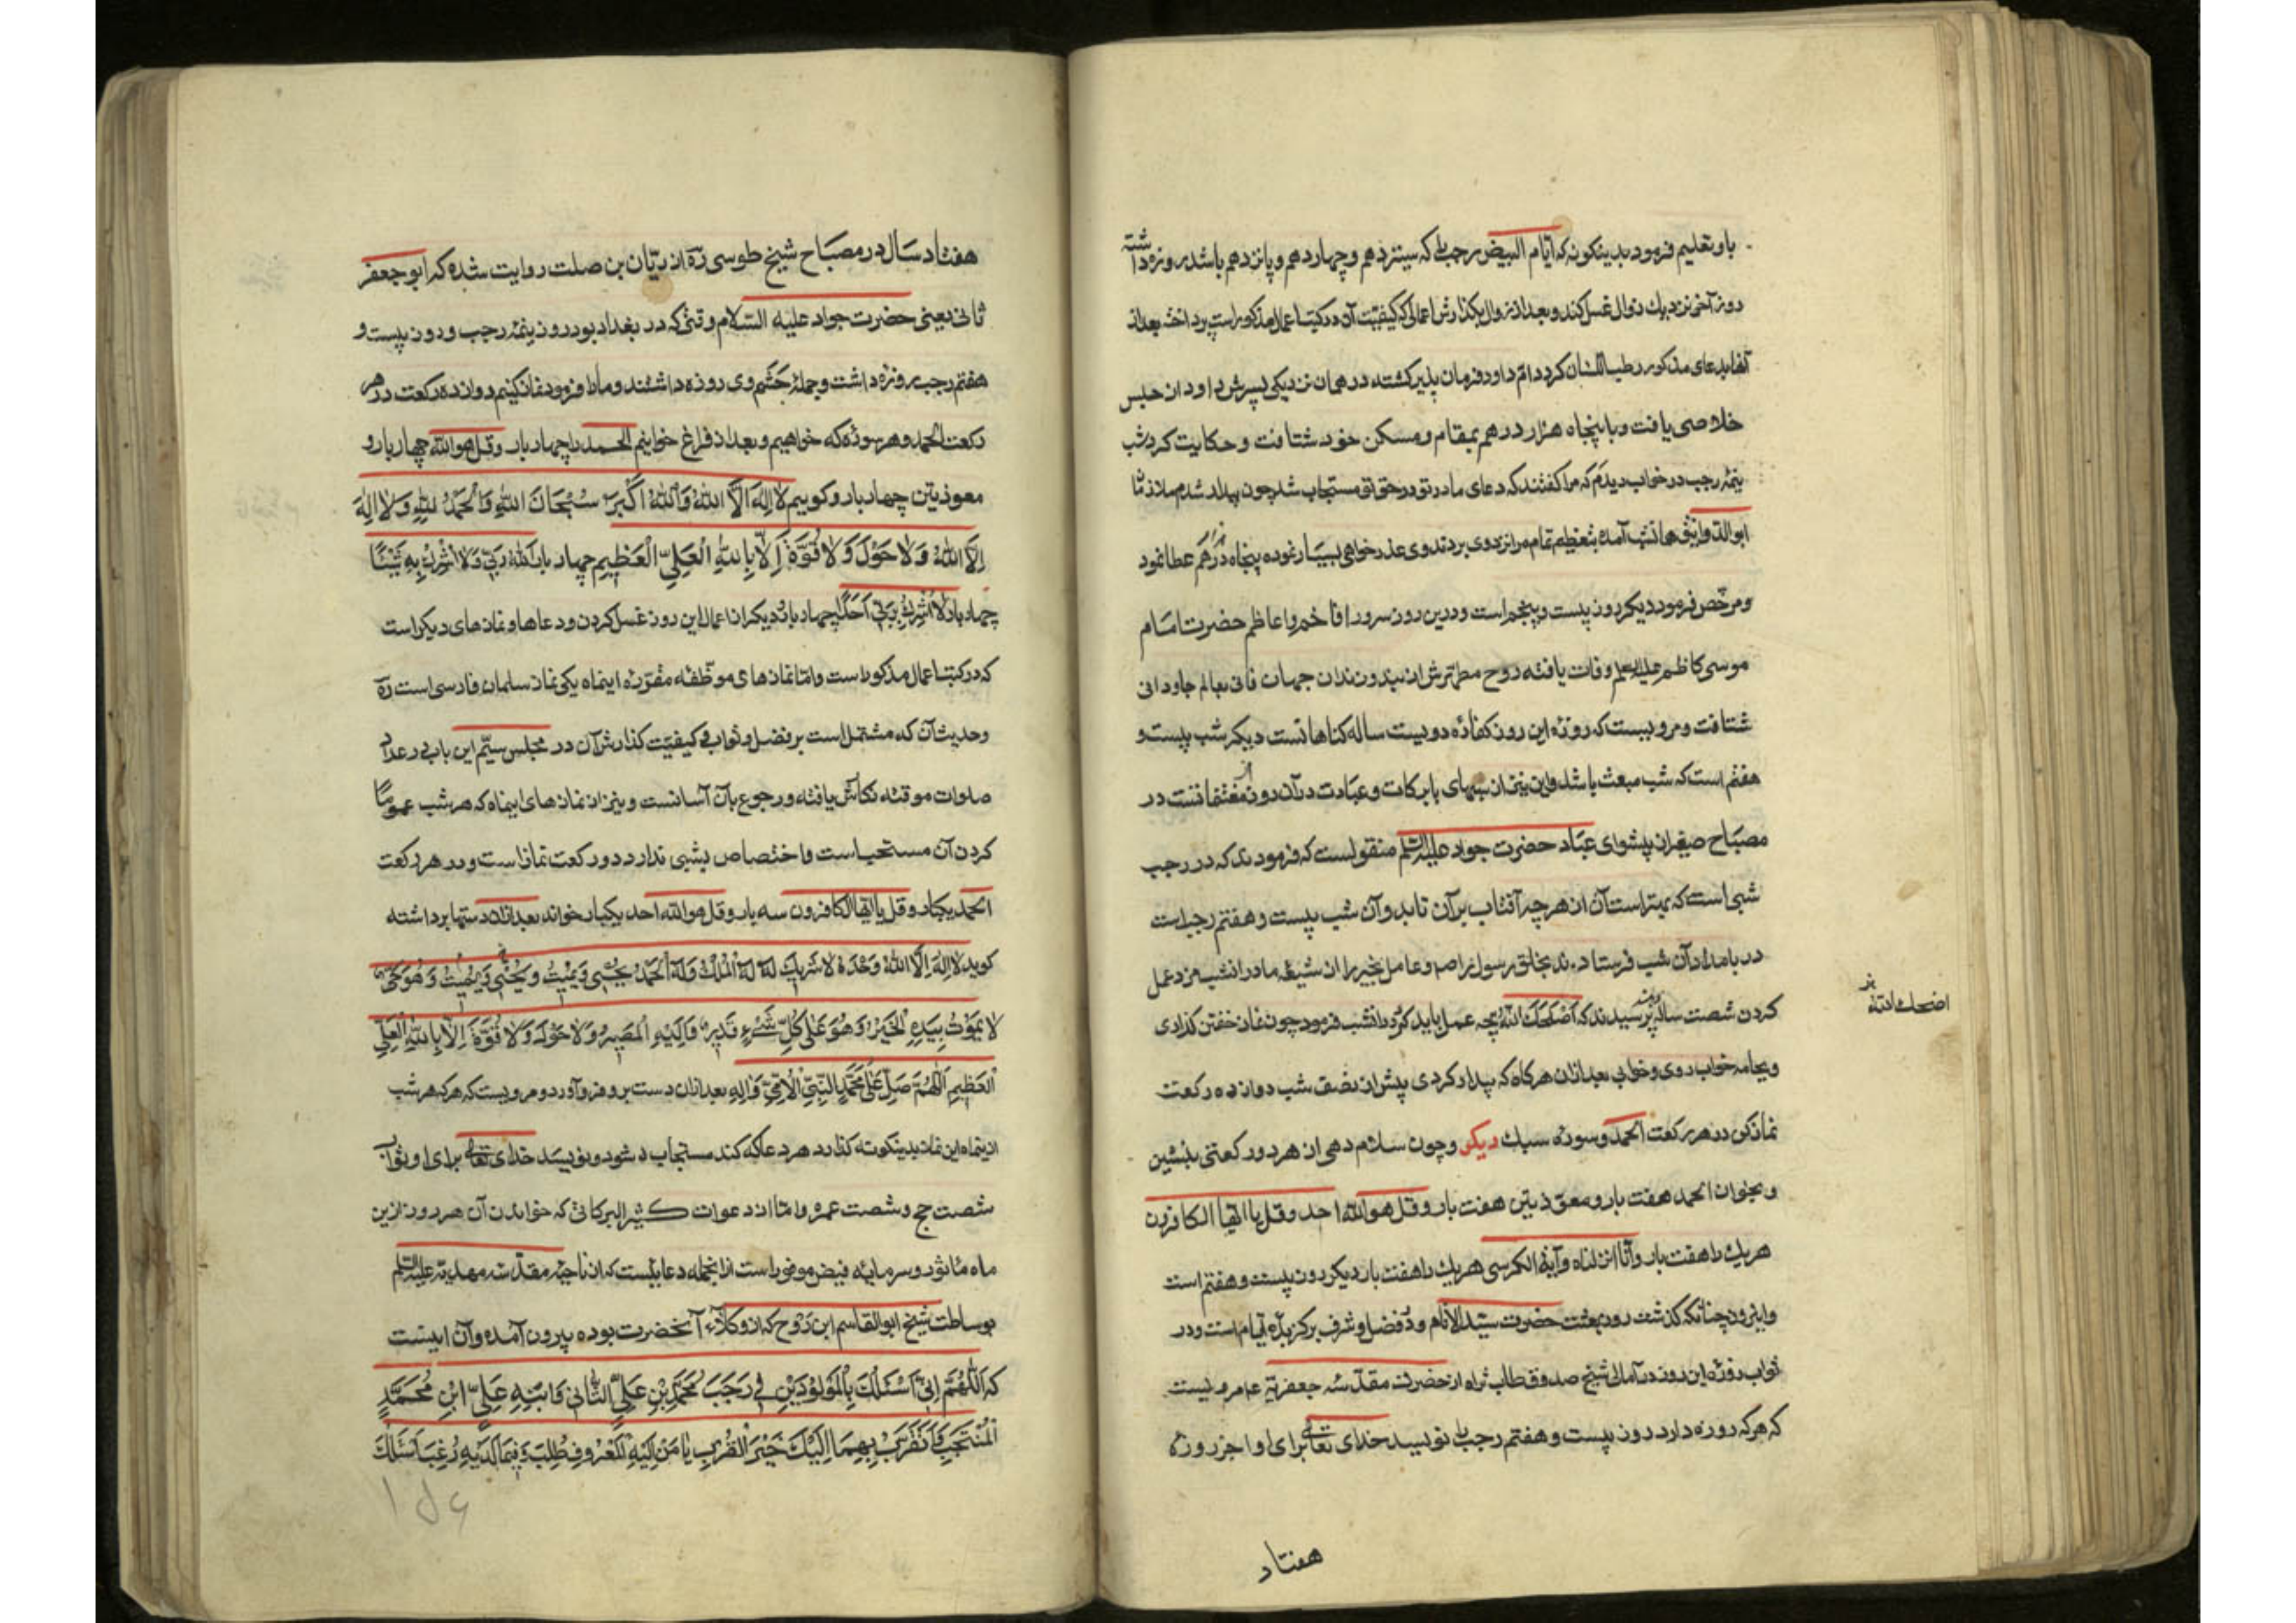 باو تعلیم فرمود بدینکونه که ایام البیض رجب را که سیزدهم و چهاردهم و پانزدهم باشد روزه داشته
روز آخر نزدیك زوال غسل کند و بعد از زوال بکذارش اعمالی که کیفیت آن در کتب اعمال مذکور است پرداخته بعد از
آنها بدعای مذکور رطب اللسان کردد ام داود فرمان پذیر کشته در همان نزدیکی پسرش داود از حبس
خلاصی یافت و با پنجاه هزار درهم بمقام و مسکن خود شتافت و حکایت کرد شب
نیمهٔ رجب در خواب دیدم که مرا کفتند که دعای مادر تو در حق تو مستجاب شد چون بیدار شدم ملازمان
ابو الدوانیق همانشب آمده بتعظیم تمام مرا نزد وی بردند وی عذر خواهی بسیار نموده پنجاه هزار درهم عطا نمود
و مرخص فرمود دیکر روز بیست و پنجم است و درین روز سرور افاخم و اعاظم حضرت امام
موسی کاظم علیه السلم وفات یافته روح مطهرش از زندان جهان فانی بعالم جاودانی
شتافت و مرویست که روزه این روز کفاره دویست ساله کناهانست دیکر شب بیست و
هفتم است که شب مبعث باشد و این نیز از شبهای با برکات و عبادت در آن روز مغتنمانست در
مصباح صغیر از پیشوای عباد حضرت جواد علیه السلم منقولست که فرمودند که در رجب
شبی است که بهتر است آن از هر چه آفتاب بر آن تابد و آن شب بیست و هفتم رجب است
در بامداد آن شب فرستاده شد بخلق رسول خدا صم و عامل بخیر را از شیعه ما در انشب مزد عمل
کردن شصت ساله پرسیدند که اضحكك الله چه عمل باید کرد در انشب فرمود چون نماز خفتن کذاردی
و بجامه خواب روی و خوابی بعد از ان هر کاه که بیدار کردی پیش از نصف شب دوازده رکعت
نماز کن در هر رکعت الحمد و سوره سبك دیکر و چون سلام دهی از هر دو رکعتی بنشین
و بخوان الحمد هفت بار و معوذتین هفت بار و قل هو الله احد و قل یا ایها الکافرون
هریك را هفت بار و انا انزلناه و آیة الکرسی هریك را هفت بار دیکر روز بیست و هفتم است
و این روز چنانکه کذشت روز بعثت حضرت سید الانام و در فضل و شرف برکزیده ایام است و در
ثواب روزه این روز در امالی شیخ صدوق طاب ثراه از حضرت مقدسه جعفریه عم مرویست
که هر که روزه دارد روز بیست و هفتم رجب را نویسد خدای تعالی برای او اجر روزه
اضحك الله
هفتاد
هفتاد سال در مصباح شیخ طوسی ره از ریان بن صلت روایت شده که ابو جعفر
ثانی یعنی حضرت جواد علیه السلام وقتی که در بغداد بود روز نیمهٔ رجب و روز بیست و
هفتم رجب روزه داشت و جملهٔ حشم وی روزه داشتند و ما را فرمود نماز کنیم دوازده رکعت در هر
رکعت الحمد و هر سوره که خواهیم و بعد از فراغ خوانیم الحمد را چهار بار و قل هو الله چهار بار و
معوذتین چهار بار و کوییم لا اله الا الله و الله اکبر سبحان الله و الحمد لله و لا اله
الا الله و لا حول و لا قوة الا بالله العلی العظیم چهار بار الله ربی و لا اشرك به شیئا
چهار بار لا اشرك بربی احدا چهار بار و دیکر از اعمال این روز غسل کردن و دعاها و نمازهای دیکر است
که در کتب اعمال مذکور است و اما نمازهای موظفه مقرره اینماه یکی نماز سلمان فارسی است ره
و حدیث آن که مشتمل است بر فضل و ثواب و کیفیت کذارش آن در مجلس سیم این باب در عداد
صلوات موقته نکارش یافته و رجوع بآن آسانست و نیز از نمازهای اینماه که هر شب عموما
کردن آن مستحب است و اختصاص بشبی ندارد دو رکعت نماز است و در هر رکعت
الحمد یکبار و قل یا ایها الکافرون سه بار و قل هو الله احد یکبار خواند بعد از ان دستها برداشته
کوید لا اله الا الله وحده لا شریك له له الملك و له الحمد یحیی و یمیت و یحیی و یمیت و هو حی
لا یموت بیده الخیر و هو علی کل شیء قدیر و الیه المصیر و لا حول و لا قوة الا بالله العلی
العظیم اللهم صل علی محمد النبی الامی و آله بعد از ان دست برو فرو آورد و مرویست که هر که هر شب
از ینماه این نماز بدینکونه کذارد هر دعا که کند مستجاب شود و نویسد خدای تعالی برای او ثواب
شصت حج و شصت عمره و اما از دعوات کثیر البرکاتی که خواندن آن هر روز ازین
ماه مأثور و سرمایهٔ فیض موفور است از انجمله دعاییست که از ناحیهٔ مقدسه مهدیه علیه السلم
بوساطت شیخ ابو القاسم ابن روح که از وکلاء آنحضرت بوده بیرون آمده و آن اینست
که اللهم انی اسئلك بالمولودین فی رجب محمد بن علی الثانی و ابنه علی ابن محمد
المنتجب و اتقرب بهما الیك خیر القرب یا من الیه المعروف طلب و فیما لدیه رغب اسئلك